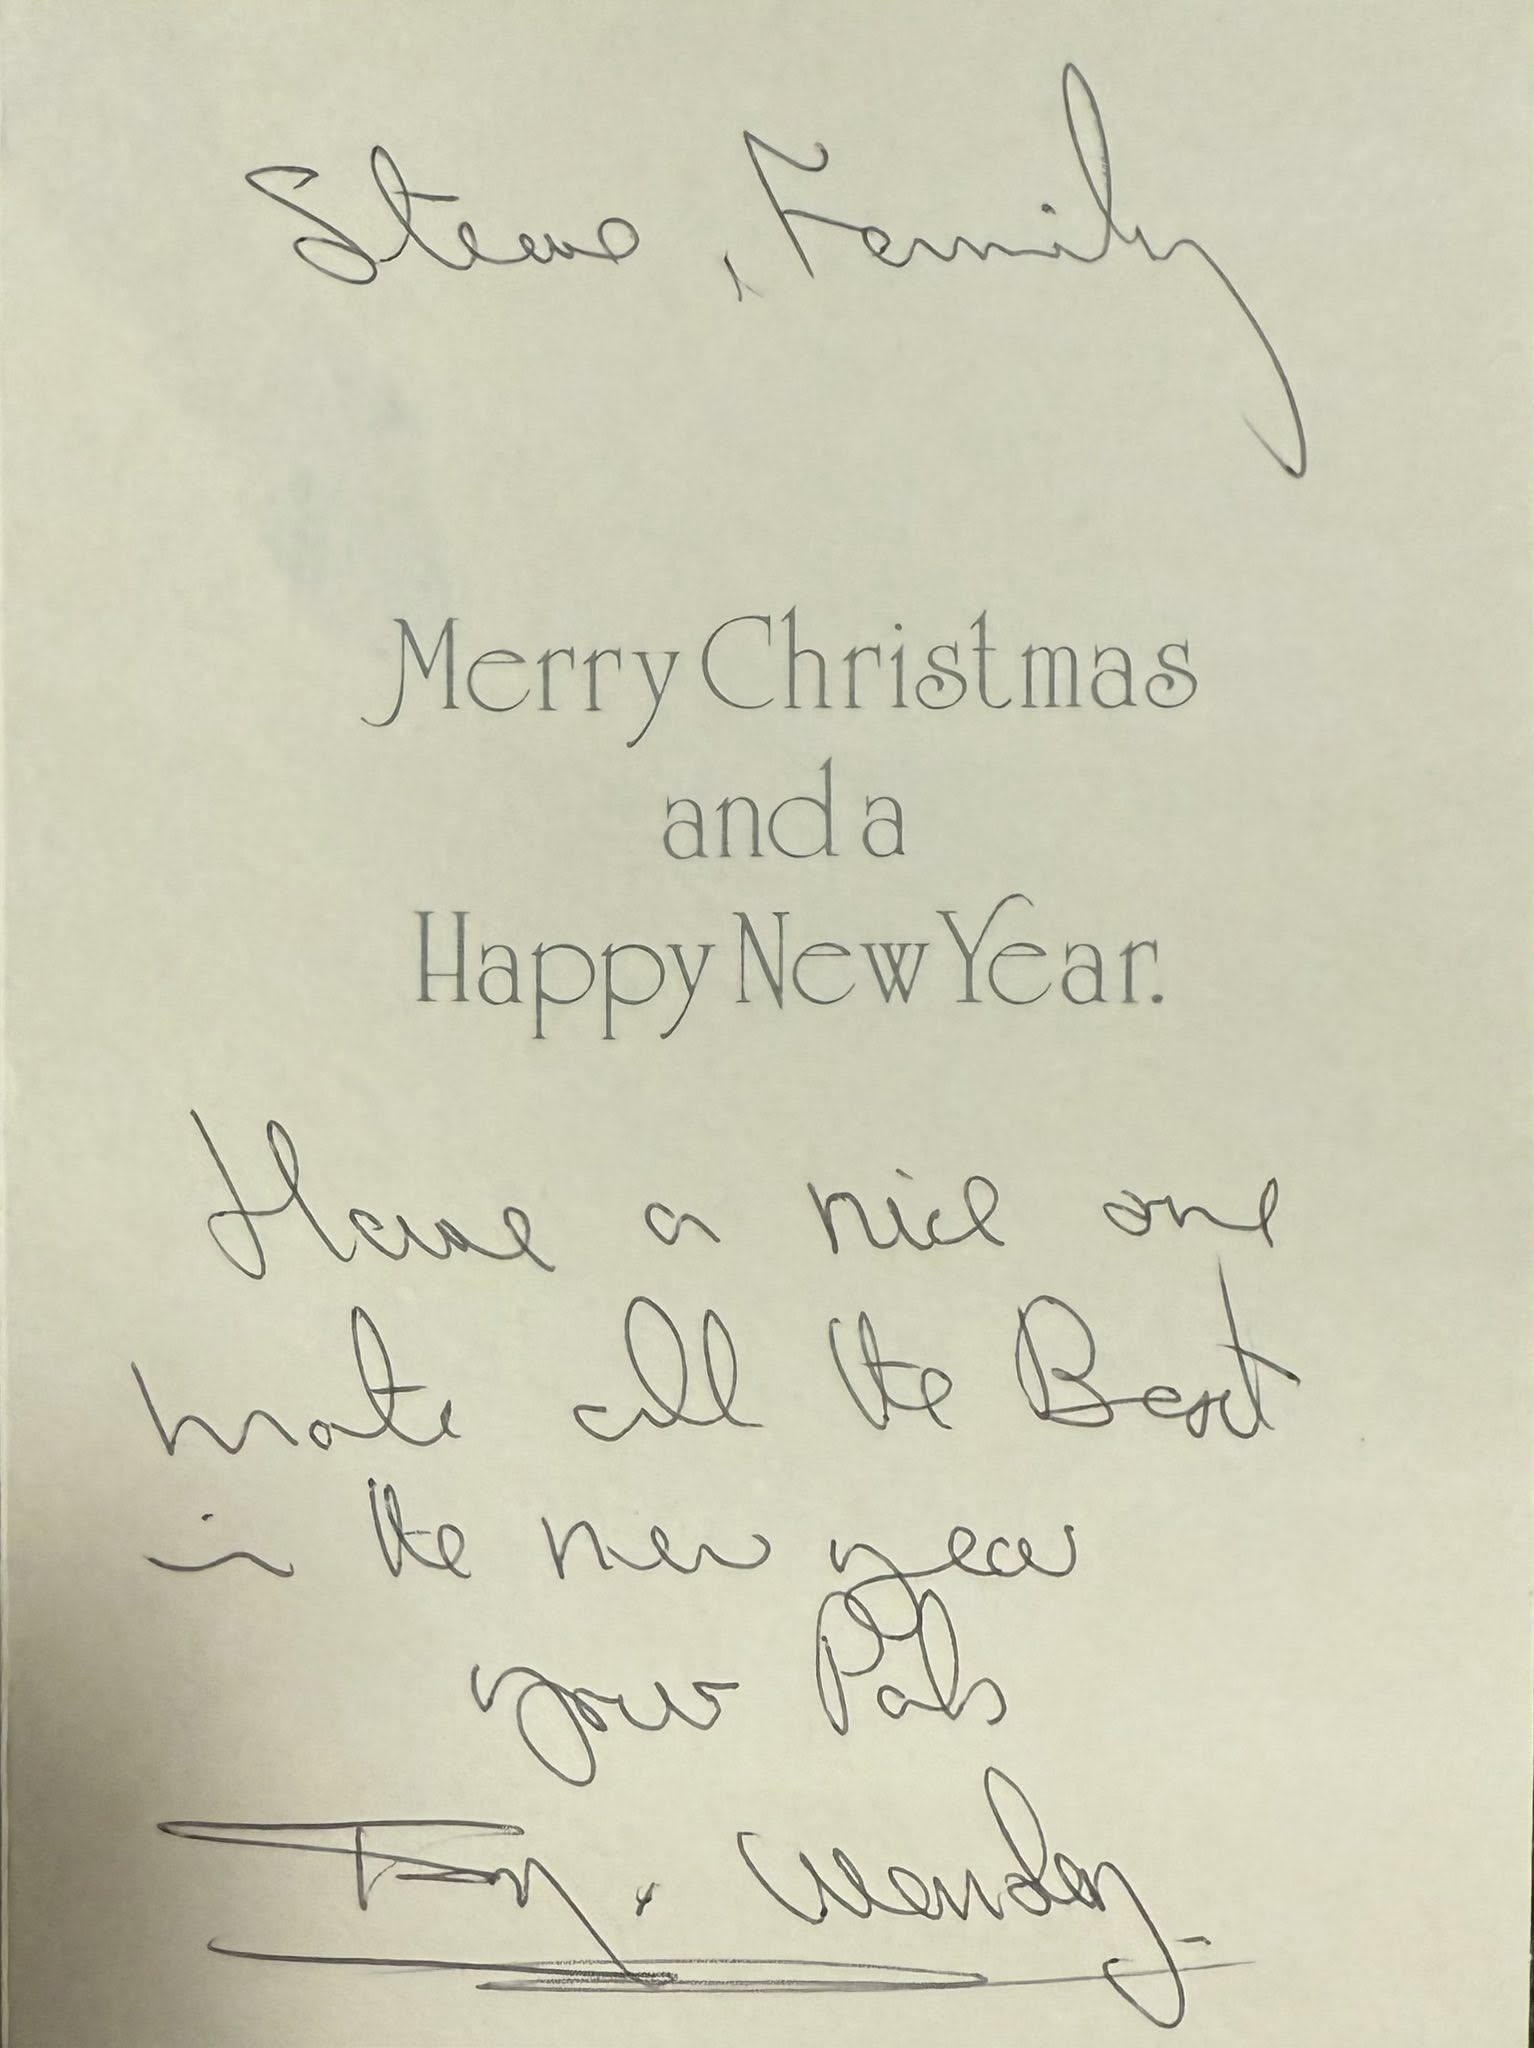 Steve, Family
Merry Christmas
and a
Happy New Year.
Have a nice one
mate all the Best
in the new year
your Pals
Wendy.